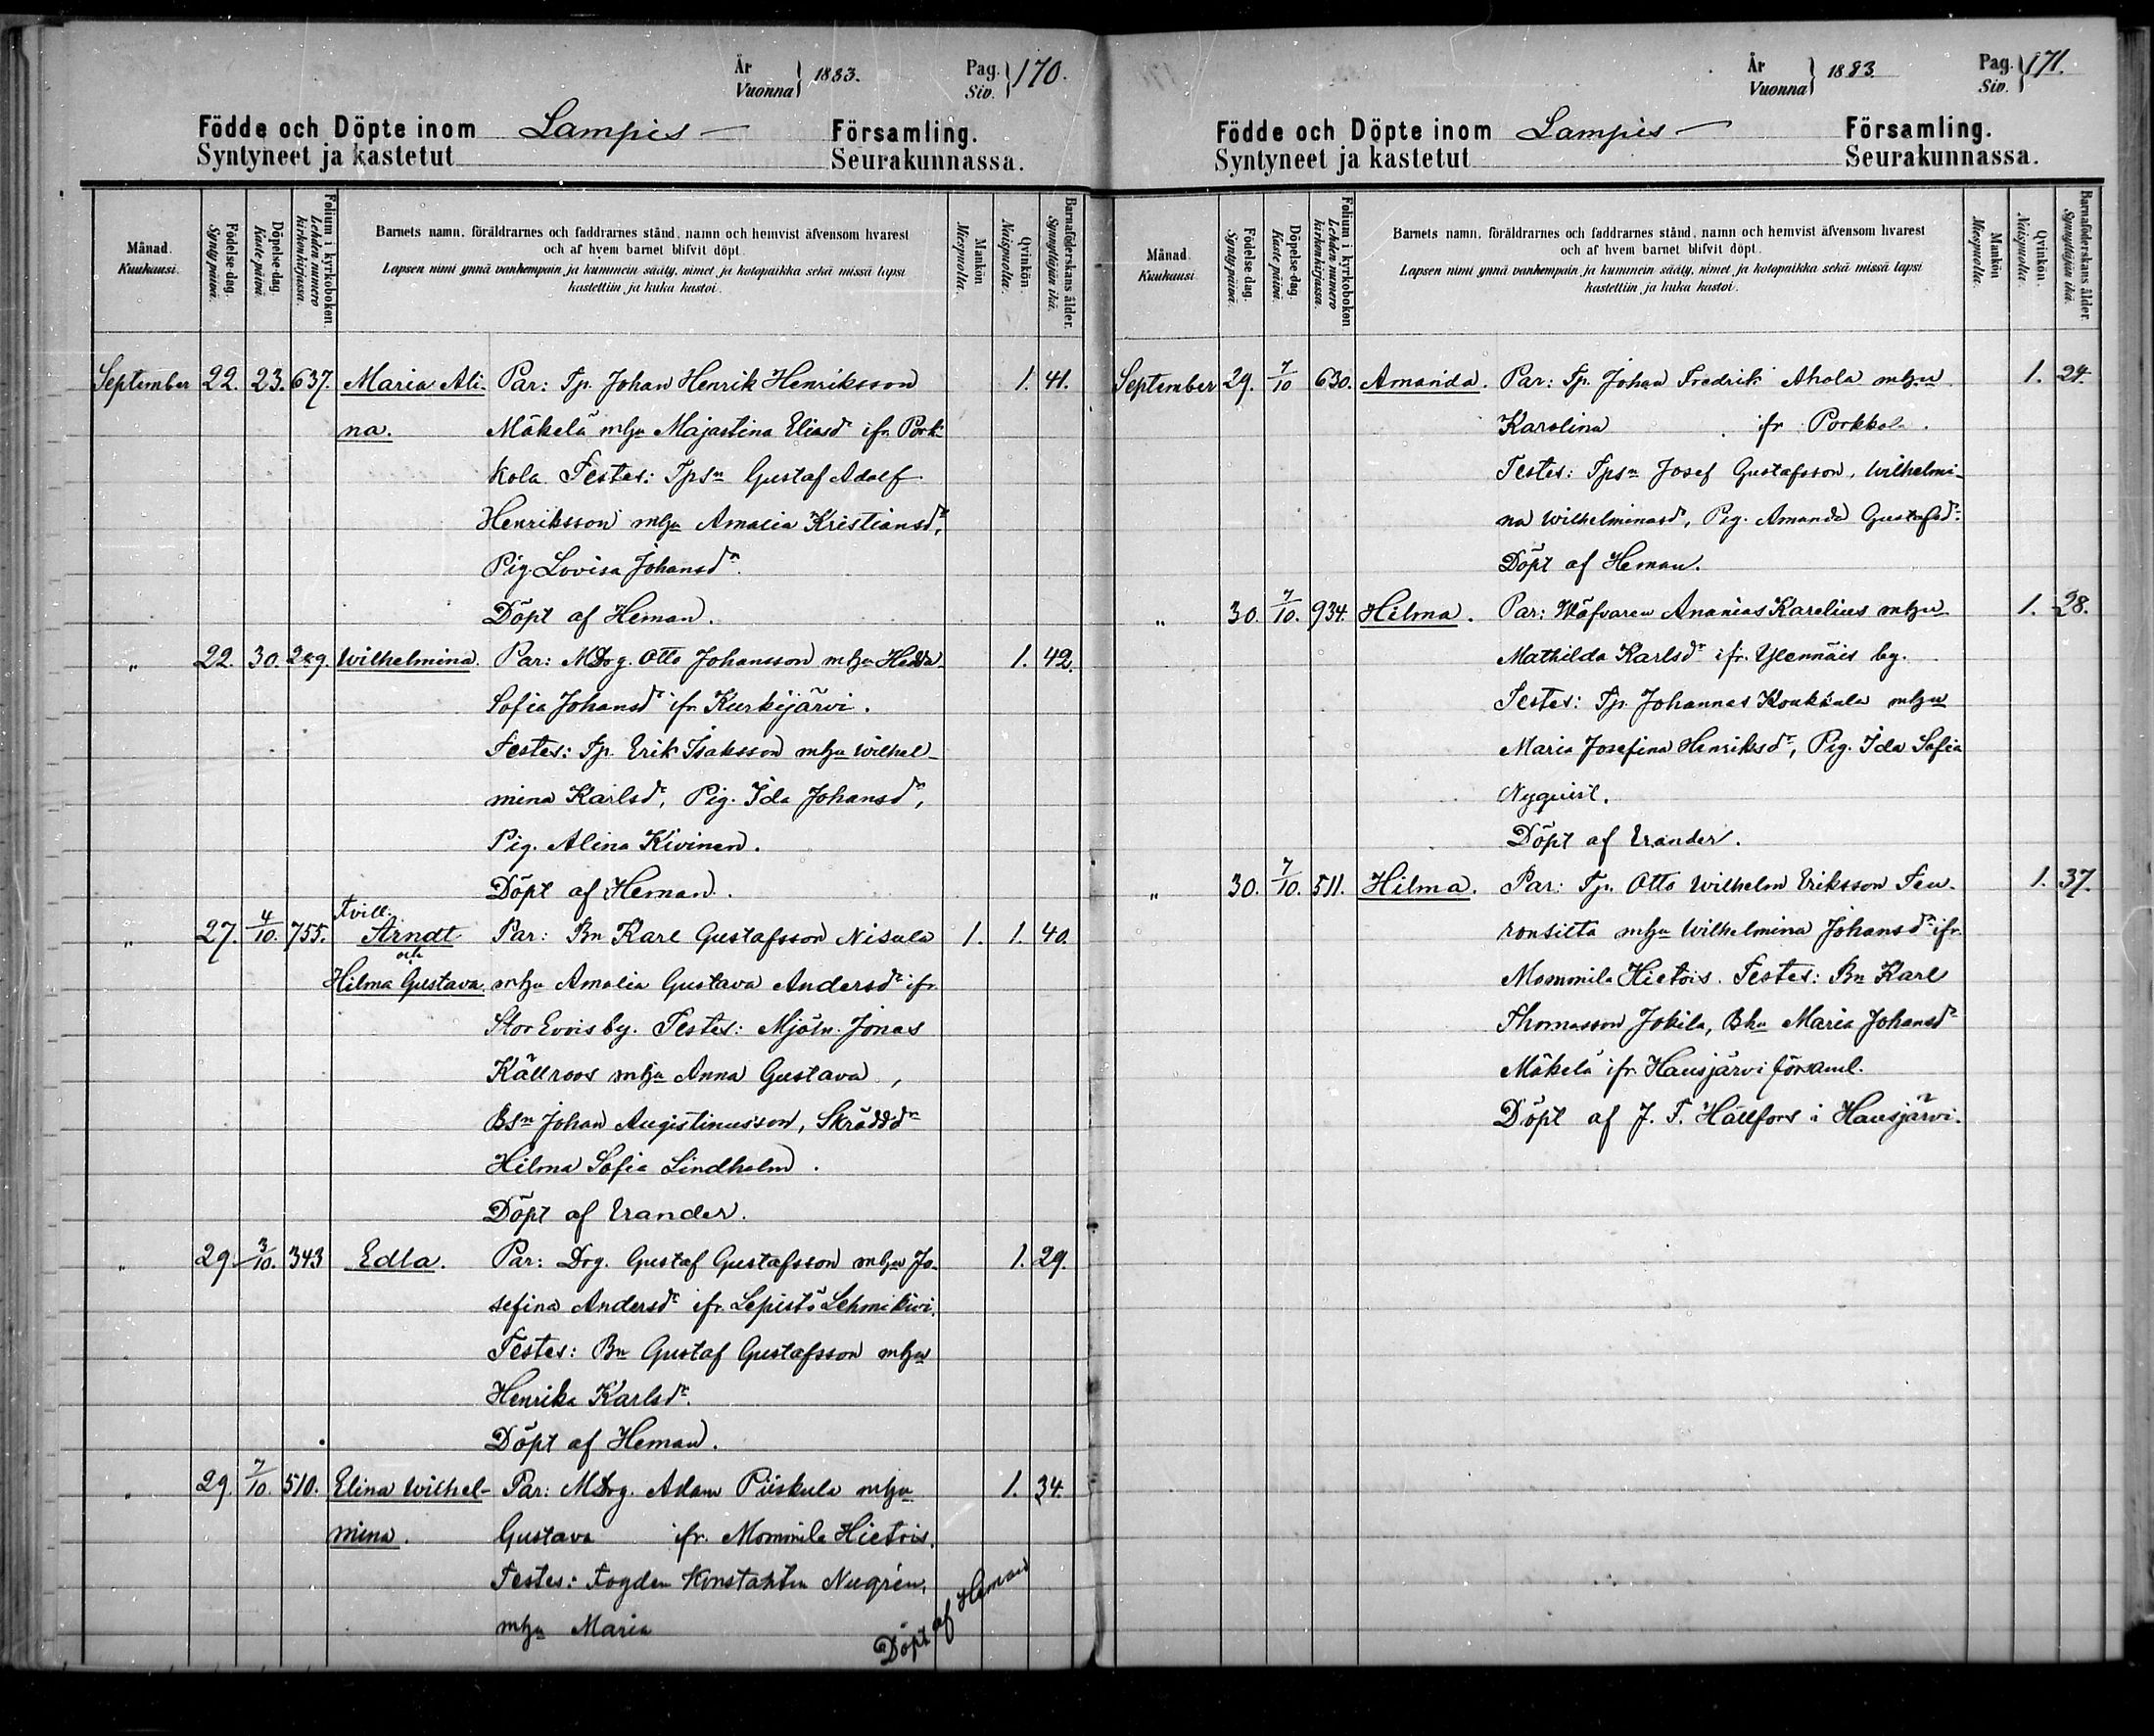 År
Vuonna } 1883.
Pag.
Siv. } 170.
Födde och Döpte inom Lampis Församling.
Syntyneet ja kastetut Seurakunnassa.
Månad.
Kuukausi.
Födelse-dag.
Synty päivä.
Döpelse-dag.
Kaste päivä
Folium i kyrkoboken
Lehden numero
kirkonkirjassa.
Barnets namn, föräldrarnes och faddrarnes stånd, namn och hemvist äfvensom hvarest
och af hvem barnet blifvit döpt.
Lapsen nimi ynnä vanhempain ja kummein sääty, nimet ja kotopaikka sekä missä lapsi
kastettiin ja kuka kastoi.
Mankön
Miespuolta.
Qvinkön.
Naispuolta.
Barnaföderskans ålder.
Synnyttäjän ikä.
September 22. 23. 637. Maria Ali- Par: Tp. Johan Henrik Henriksson 1. 41.
na. Mäkelä mhu Majastina Eliasdr ifr. Pork-
kola. Testes: Tpsn Gustaf Adolf
Henriksson mhu Amalia Kristiansdr,
Pig. Lovisa Johansdr.
Döpt af Heman.
" 22. 30. 289. Wilhelmina. Par: MDrg. Otto Johansson mhu Hedda 1. 42.
Sofia Johansdr ifr Kurkijärvi.
Testes: Tp. Erik Isaksson mhu Wilhel-
mina Karlsdr, Pig. Ida Johansdr,
Pig. Alina Kivinen.
Döpt af Heman.
Tvill.
" 27. 4/10. 755. Arndt Par: Bn Karl Gustafsson Nisula 1. 1. 40.
och
Hilma Gustava. mhu Amalia Gustava Andersdr ifr
Stor Evois by. Testes: Mjöln. Jonas
Källroos mhu Anna Gustava ,
Bsn Johan Augistinusson, Skrädddr
Hilma Sofia Lindholm.
Döpt af Erander.
" 29. 3/10. 343 Edla. Par: Drg. Gustaf Gustafsson mhu Jo- 1. 29.
sefina Andersdr ifr. Lepistö Lehmikivi.
Testes: Bn Gustaf Gustafsson mhu
Henrika Karlsdr.
Döpt af Heman.
" 29. 7/10. 510. Elina Wilhel- Par: MDrg. Adam Piiskula mhu 1. 34.
mina. Gustava ifr. Mommila Hietois.
Testes: Fogden Konstantin Nygrén,
mhu Maria
Döpt af Heman
År
Vuonna } 1883
Pag.
Siv. } 171.
Födde och Döpte inom Lampis Församling.
Syntyneet ja kastetut Seurakunnassa.
Månad.
Kuukausi.
Födelse-dag.
Synty päivä.
Döpelse-dag.
Kaste päivä.
Folium i kyrkoboken
Lehden numero
kirkonkirjassa.
Barnets namn, föräldrarnes och faddrarnes stånd, namn och hemvist äfvensom hvarest
och af hvem barnet blifvit döpt.
Lapsen nimi ynnä vanhempain ja kummein sääty, nimet ja kotopaikka sekä missä lapsi
kastettiin ja kuka kastoi.
Mankön
Miespuolta.
Qvinkön.
Naispuolta.
Barnaföderskans ålder.
Synnyttäjän ikä.
September 29. 7/10 630. Amanda. Par: Tp. Johan Fredrik Ahola mhu 1. 24.
Karolina ifr Porkkola.
Testes: Tpsn Josef Gustafsson, Wilhelmi-
na Wilhelminasdr, Pig. Amanda Gustafsdr.
Döpt af Heman.
" 30. 7/10. 934. Hilma. Par: Wäfvaren Ananias Karelius mhu 1. 28.
Mathilda Karlsdr ifr. Ylennäis by.
Testes: Tp. Johannes Koukkula mhu
Maria Josefina Henriksdr, Pig. Ida Sofia
Nyqvist.
Döpt af Erander.
" 30. 7/10. 511. Hilma. Par: Tp. Otto Wilhelm Eriksson Teu- 1. 37.
ronsilta mhu Wilhelmina Johansdr ifr.
Mommila Hietois. Testes: Bn Karl
Thomasson Jokila, Bhu Maria Johansdr
Mäkelä ifr. Hausjärvi församl.
Döpt af J. F. Hällfors i Hausjärvi.